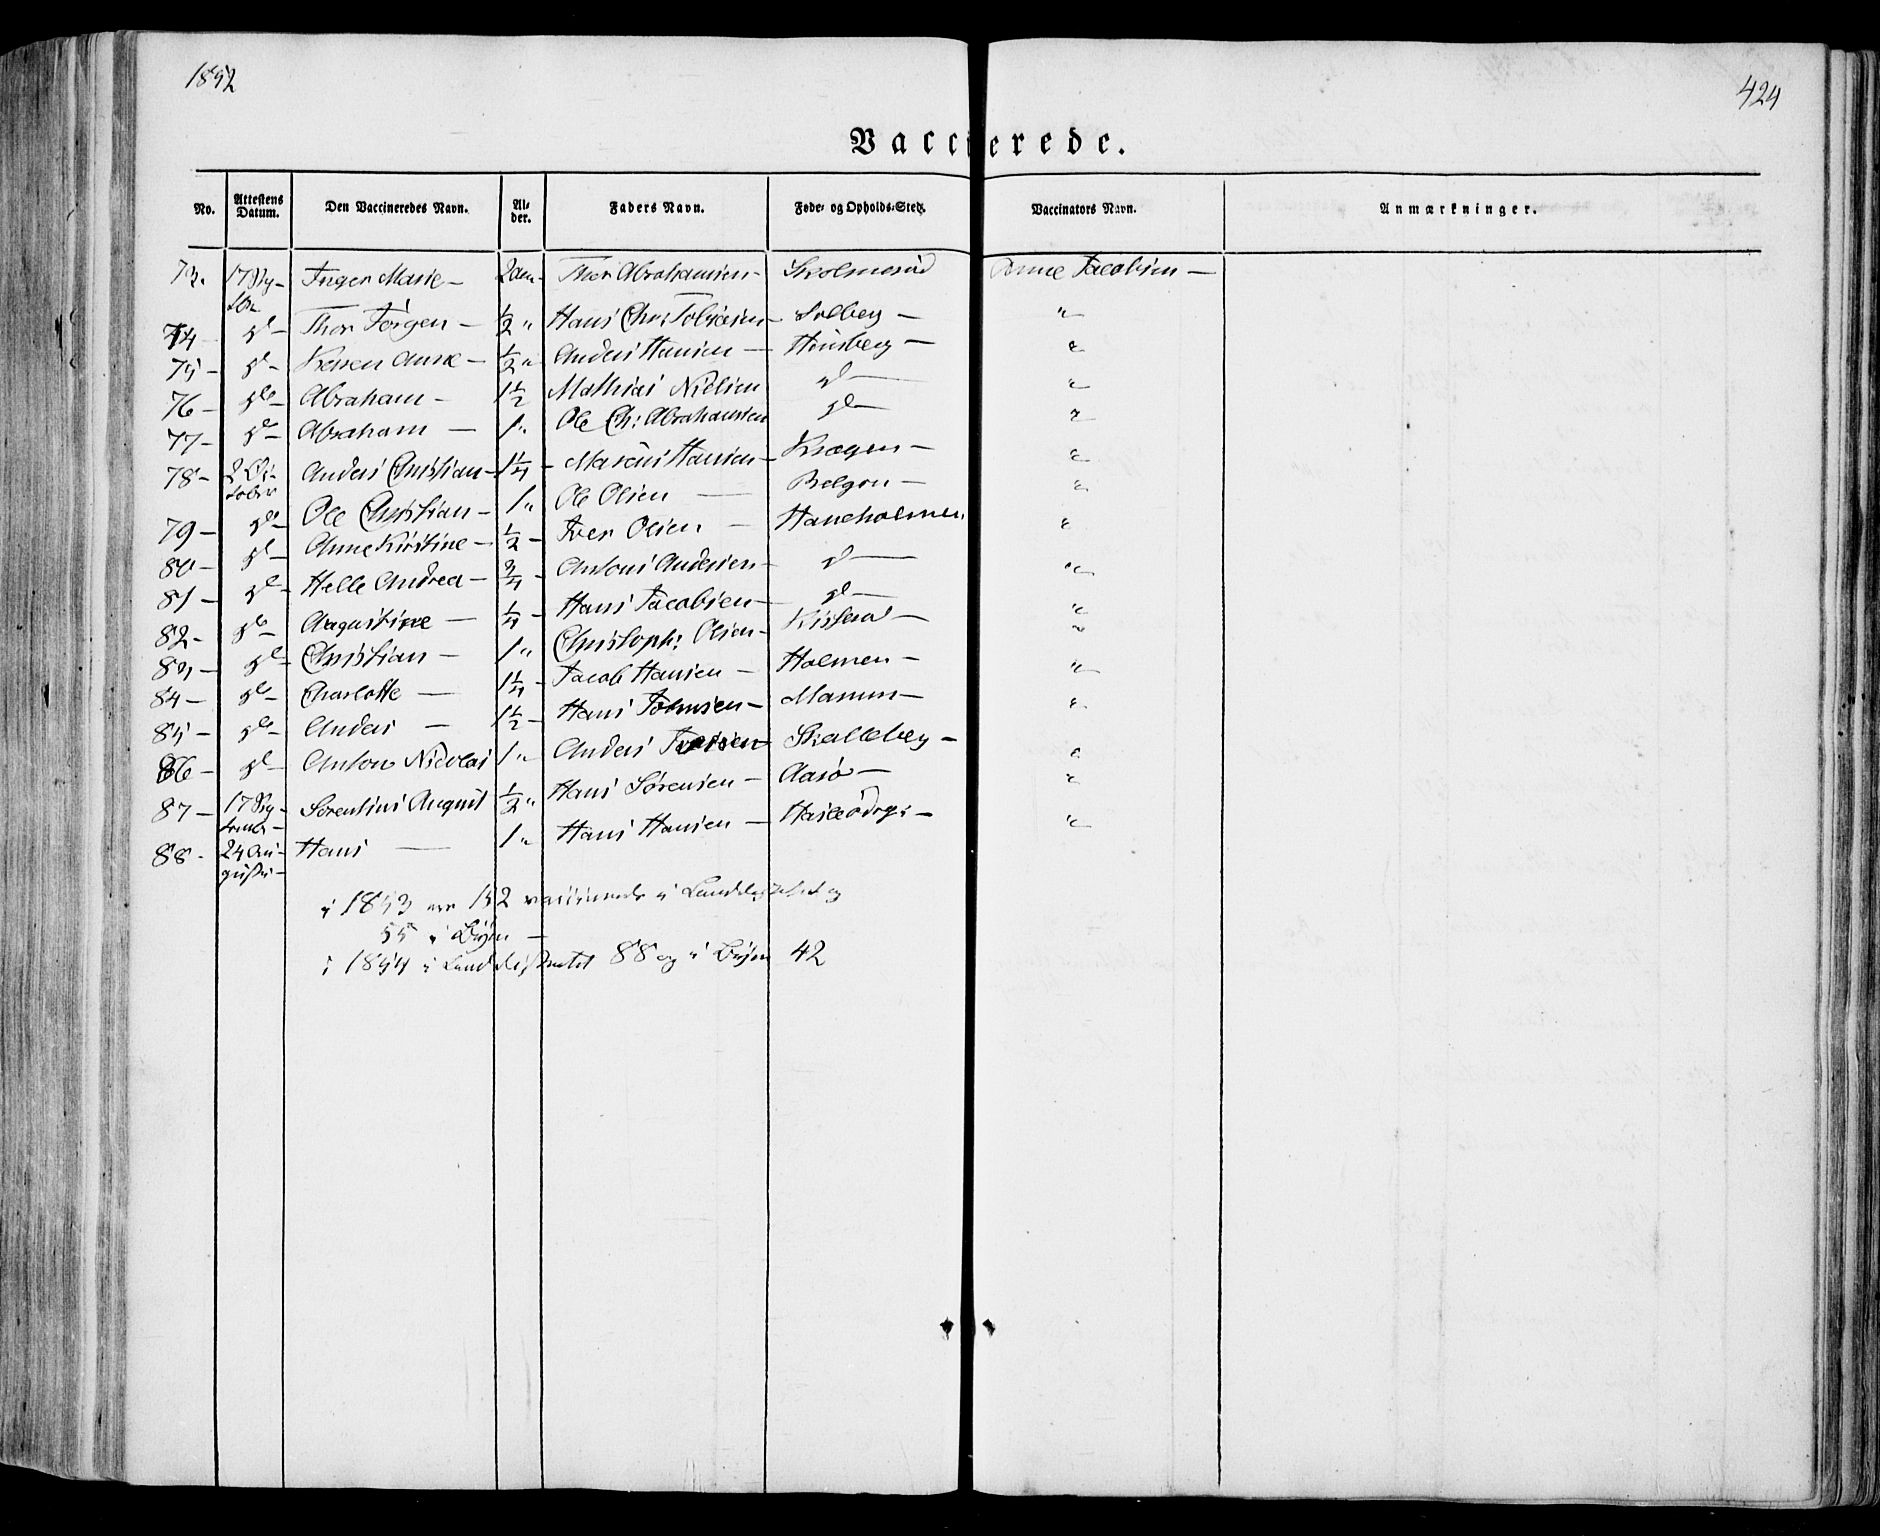 1852
424
Vaccinerede.
No. Attestens Datum. Den Vaccineredes Navn. Al- der. Faders Navn. Føde- og Opholds-Sted. Vaccinators Navn. Anmærkninger.
73. 17 Inger Marie — Thor Abrahamsen — Anne Jacobsen —
74 — d — Thor Jørgen — 1/2 " Hans Chr: Tobiasen — Solberg — "
75 — d — Karen Anne — 1/2 " Anders Hansen — Hinsberg — "
76 — do — Abraham — 1 1/2 Mathias Nielsen d — "
77 — do — Abraham — 1 " Ole Ch: Abrahamsen d — "
78 — 2 Oc- tober Anders Christian — 1 1/4 — Marcus Hansen — Kragen — "
79 — do — Ole Christian — 1 " Ole Olsen — Belgen — "
80 — d — Anne Kirstine — 1/2 — Iver Olsen — Haneholmen "
81 — do — Helle Andrea — 3/4 — Antoni Andersen — d — "
82 — do — Augustine — 1/4 — Hans Jacobsen — d — "
83 — do — Christian — 1 " Christoph: Olsen — "
84 — do — Charlotte — 1 1/4 — Jacob Hansen — Holmen — "
85 — do — Anders — 1 1/2 — Hans Johnsen — "
86 — d — Anton Nicolai 1 " Anders Iversen Skalleberg — "
87 — 17 Sep- tember — Sorentius August 1/2 " Hans Sørensen — Aasø — "
88 — 24 Au- gust — Hans — 1 " Hans Hansen — "
i 1853 152 vaccinerede i Landdistrictet og
55 i Byen —
i 1854 i Landdistrictet 88 og i Byen 42